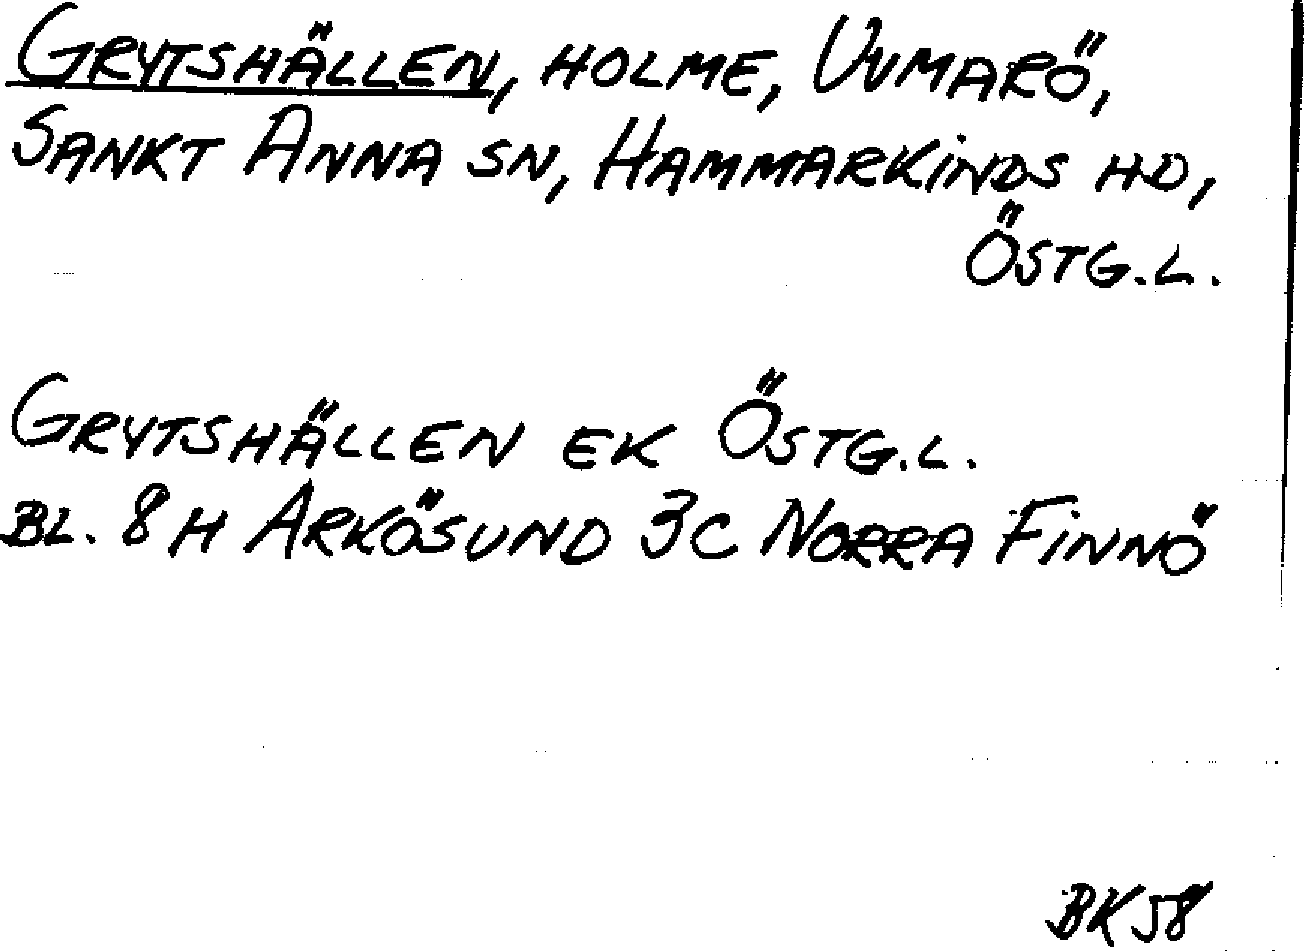 GRYTSHÄLLEN, HOLME, UVMARÖ,
SANKT ANNA SN, HAMMARKINDS HD,
ÖSTG.L.
GRYTSHÄLLEN EK ÖSTG.L.
BL. 8H ARKÖSUND 3C NORRA FINNÖ
BK58